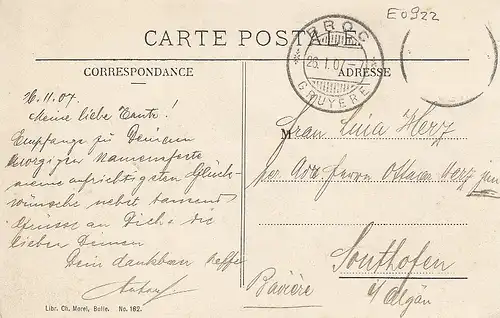 E0922
CARTE POSTALE
BROC
26.I.07.-7
GRUYÈRE
CORRESPONDANCE
ADRESSE
26.11.07.
Meine liebe Tante!
Empfange zu Deinem
morgigen Namensfeste
meine aufrichtigsten Glück-
wünsche nebst tausend
Grüsse an Dich & die
lieben Deinen
Dein dankbarer Neffe
M
Frau Lina Herz
per Adr. Herrn Ottmar Herz jun
Sonthofen
i/Algäu
Bavière
Libr. Ch. Morel, Bulle. No. 162.